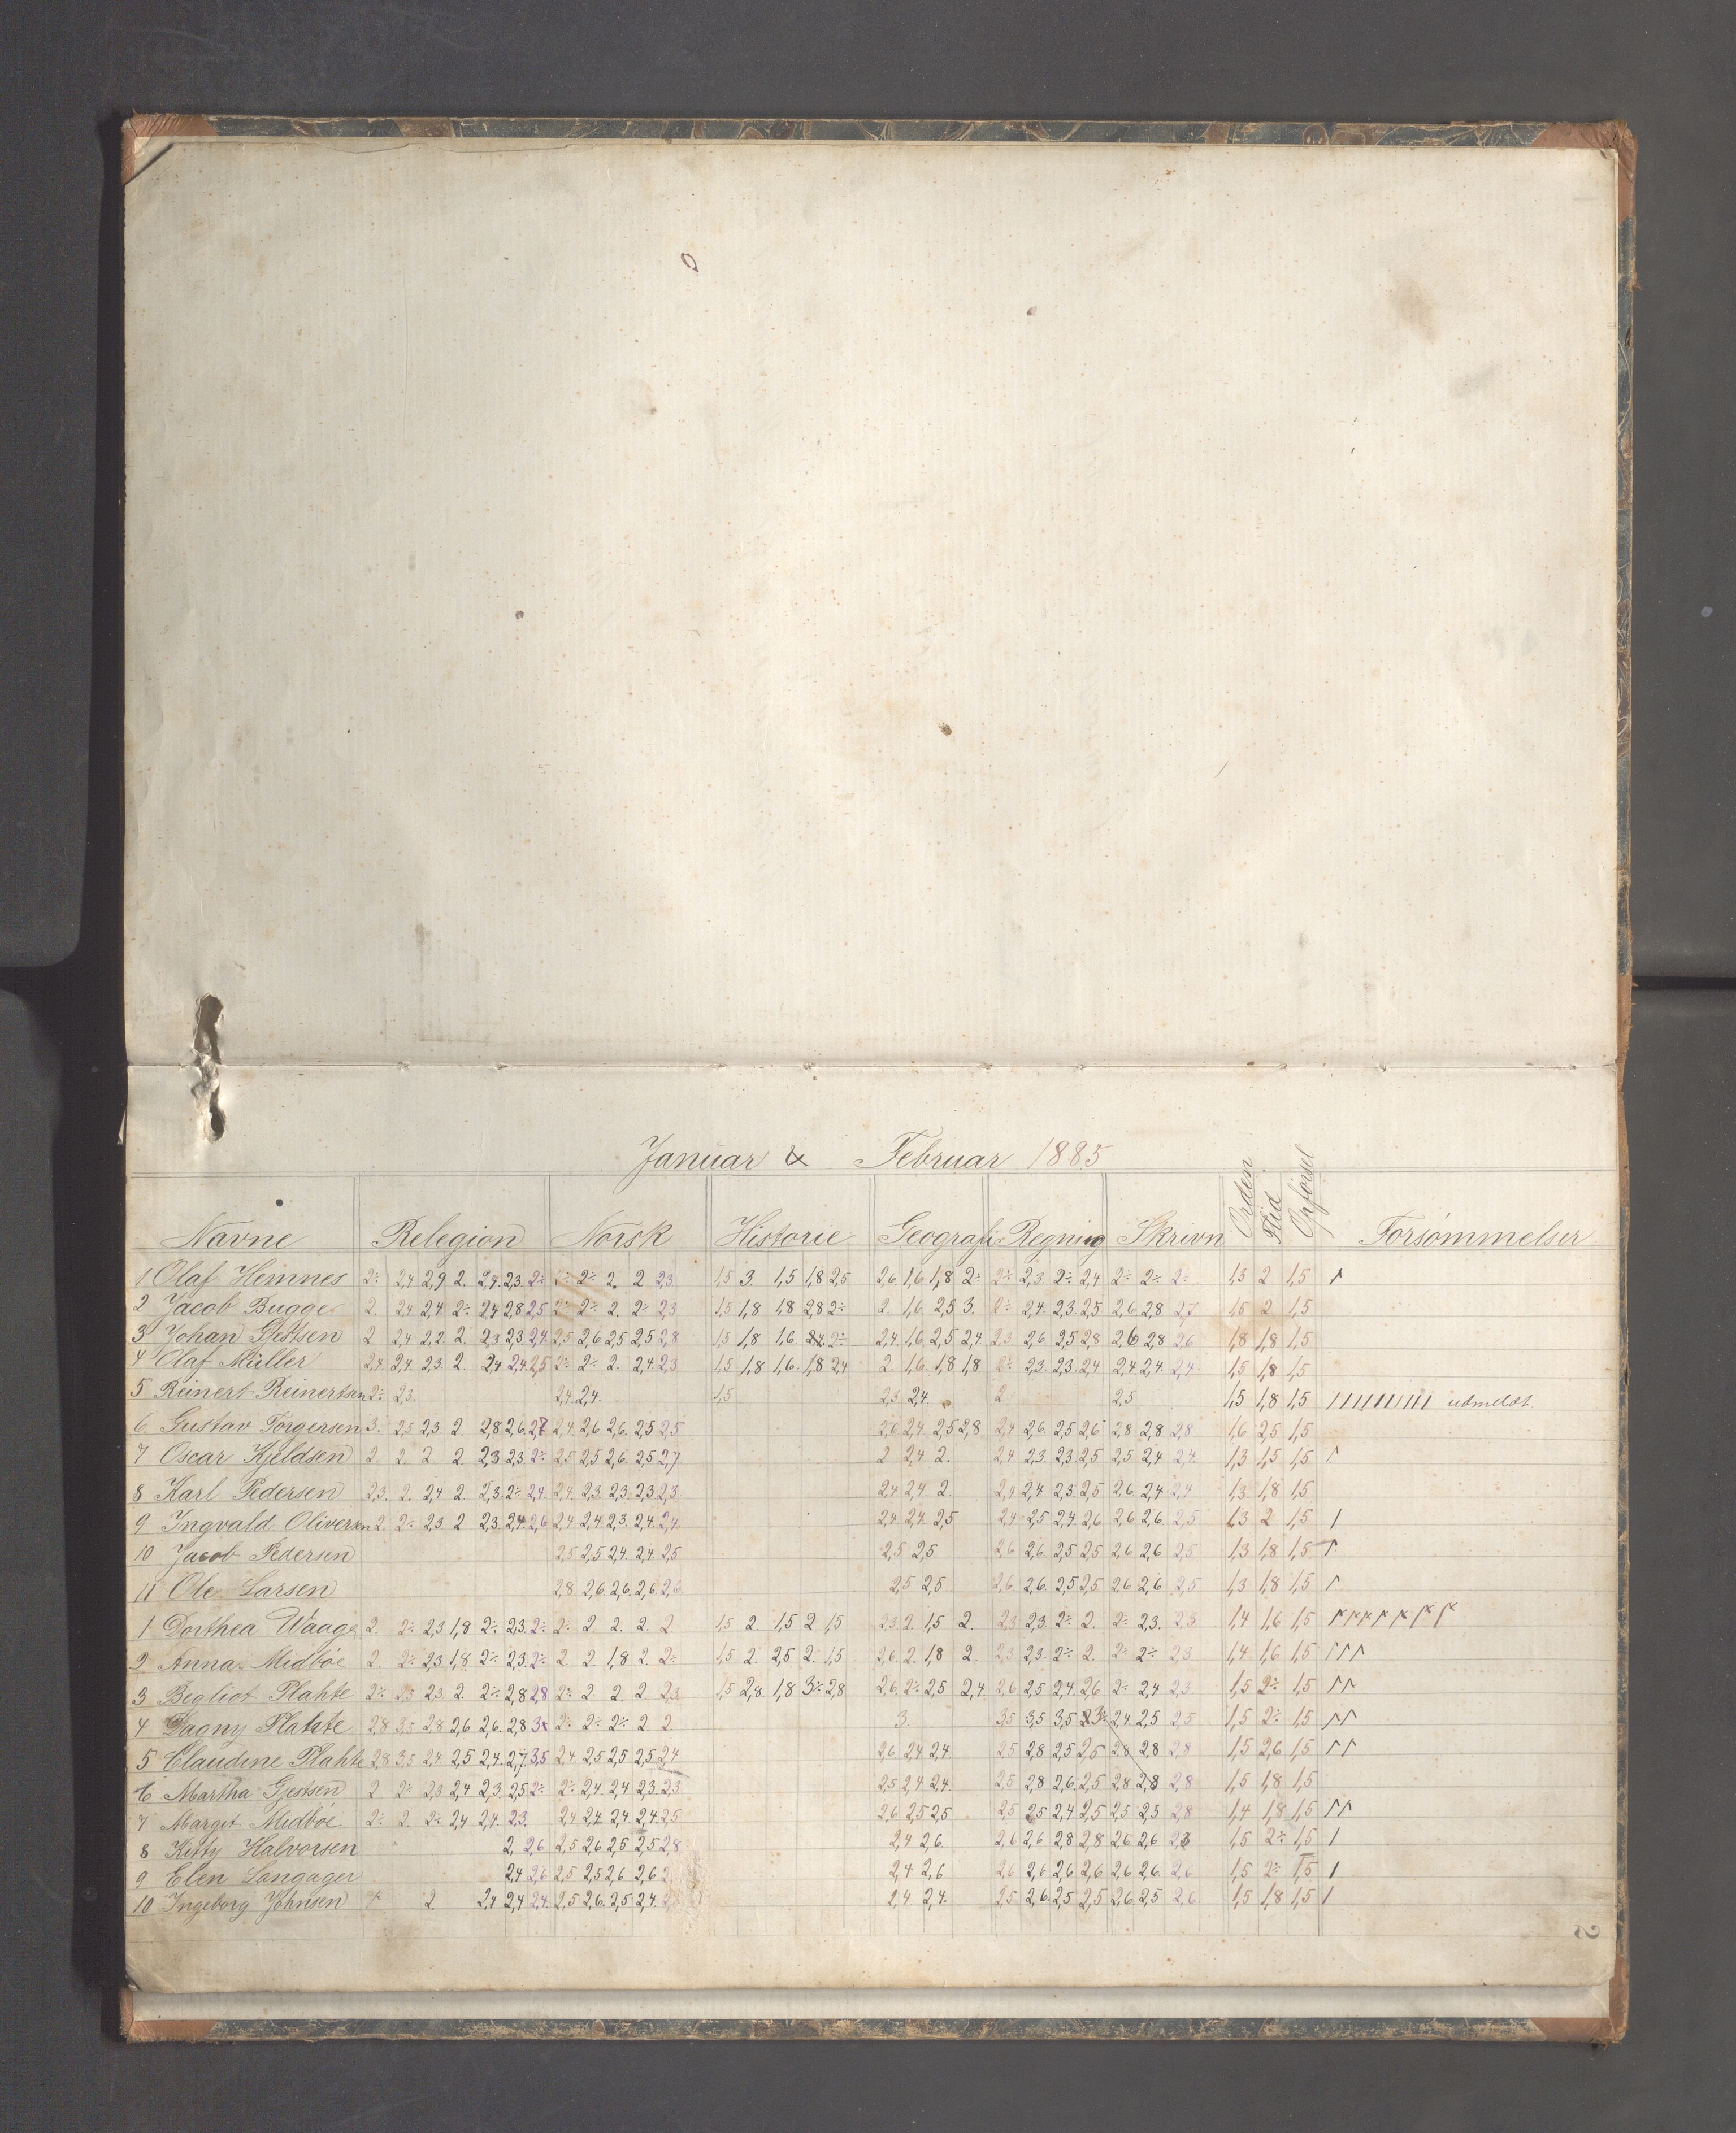 Januar & Februar 1885
Navne Relegion Norsk Historie Geografi Regning Skrivn Orden Flid Opførsel Forsømmelser
1 Olaf Hemnes 2÷ 2,4 2,9 2. 2,4. 2,3. 2÷ 2÷ 2÷ 2. 2 2,3 1,5 3. 1,5 1,8 2,5 2,6. 1,6 1,8 2÷ 2÷ 2,3 2÷ 2,4 2÷ 2÷ 2÷ 1,5 2 1,5
2 Jacob Bugge 2. 2,4 2,4. 2÷ 2,4 2,8 2,5 2÷ 2÷ 2. 2÷ 2,3 1,5 1,8 1,8 2,8 2÷ 2. 1,6 2,5 3. 2÷ 2,4. 2,3 2,5 2,6. 2,8 2,7 1,5 2 1,5
3 Johan Gjestsen 2 2,4 2,2 2. 2,3 2,3 2,4 2,5 2,6 2,5 2,5 2,8 1,5 1,8 1,6. 2÷ 2,4. 1,6 2,5 2,4 2,3 2,6. 2,5 2,8 2,6 2,8 2,6 1,8 1,8 1,5
4 Olaf Müller 2,4 2,4 2,3 2. 2,4 2,4. 2,5 2÷ 2÷ 2. 2,4. 2,3 1,5 1,8 1,6. 1,8 2,4 2. 1,6. 1,8 1,8 2÷ 2,3. 2,3 2,4 2,4 2,4 2,4 1,5 1,8 1,5
5 Reinert Reinertsen 2÷ 2,3. 2,4. 2,4. 1,5 2,3 2,4. 2 2,5 1,5 1,8 1,5 udmeldt.
6 Gustav Torgersen 3. 2,5 2,3. 2. 2,8 2,6. 2,7 2,4 2,6 2,6. 2,5 2,5 2,6 2,4. 2,5 2,8 2,4 2,6. 2,5 2,6 2,8 2,8 2,8 1,6 2,5 1,5
7 Oscar Kjeldsen 2. 2. 2. 2. 2,3 2,3. 2÷ 2,5 2,5 2,6. 2,5 2,7 2 2,4 2. 2,4 2,3. 2,3 2,5 2,5 2,4 2,4 1,3 1,5 1,5
8 Karl Pedersen 2,3. 2. 2,4 2. 2,3. 2÷ 2,4. 2,4 2,3. 2,3. 2,3 2,3. 2,4 2,4 2. 2,4 2,4. 2,3 2,5 2,6 2,4 2,4 1,3 1,8 1,5
9 Ingvald Oliversen 2. 2÷ 2,3. 2 2,3. 2,4. 2,6 2,4 2,4 2,3. 2,4. 2,4. 2,4 2,4. 2,5 2,4 2,5 2,4. 2,6 2,6 2,6. 2,5 1,3 2 1,5
10 Jacob Pedersen 2,5 2,5 2,4. 2,4. 2,5 2,5 2,5 2,6 2,6. 2,5 2,5 2,6 2,6 2,5 1,3 1,8 1,5
11 Ole Larsen 2,8 2,6. 2,6. 2,6. 2,6. 2,5 2,5. 2,6 2,6. 2,5 2,5 2,6 2,6 2,5 1,3 1,8 1,5
1 Dorthea Waage 2. 2÷ 2,3 1,8 2÷ 2,3. 2÷ 2÷ 2. 2. 2. 2 1,5 2. 1,5 2 1,5 2,3 2. 1,5 2. 2,3 2,3 2÷ 2. 2÷ 2,3. 2,3 1,4 1,6 1,5
2 Anna Midbøe 2. 2÷ 2,3 1,8 2÷ 2,3. 2÷ 2. 2. 1,8 2. 2÷ 1,5 2. 2,5 2. 1,5 2,6. 2. 1,8 2. 2,3 2,3. 2÷ 2. 2÷ 2÷ 2,3 1,4 1,6 1,5
3 Begliot Plahte 2÷ 2,3 2,3. 2. 2÷ 2,8 2,8 2÷ 2. 2. 2. 2,3. 1,5 2,8. 1,8 3÷ 2,8 2,6. 2÷ 2,5 2,4. 2,6 2,5 2,4. 2,6 2÷ 2,4 2,3. 1,5 2÷ 1,5
4 Dagny Plahte 2,8 3,5 2,8 2,6 2,6. 2,8 2÷ 2÷ 2÷ 2 2. 3. 3,5 3,5 3,5 2,4. 2,5 2,5 1,5 2÷ 1,5
5 Claudine Plahte 2,8 3,5 2,4 2,5 2,4. 2,7. 3,5 2,4. 2,5 2,5 2,5 2,4 2,6 2,4 2,4. 2,5 2,8 2,5 2,5 2,8 2,8 2,8 1,5 2,6 1,5
6 Martha Gjestsen 2 2÷ 2,3 2,4 2,3 2,5 2÷ 2÷ 2,4 2,4 2,3 2,3 2,5 2,4 2,4. 2,5 2,8 2,6. 2,5 2,8 2,8 2,8 1,5 1,8 1,5
7 Margit Midbøe 2÷ 2. 2÷ 2,4 2,4. 2,3. 2,4 2,4 2,4 2,4. 2,5 2,6 2,5 2,5 2,5 2,5 2,4 2,5 2,5 2,3 2,8 1,4 1,8 1,5
8 Kitty Halvorsen 2. 2,6 2,5 2,6 2,5 2,5 2,8 2,4 2,6. 2,6 2,6 2,8 2,8 2,6 2,6 1,5 2÷ 1,5
9 Elen Langager 2,4 2,6 2,5 2,5 2,6 2,6 2,4 2,6 2,6 2,6 2,6 2,6 2,6 2,6. 2,6 1,5 2÷ 1,5
10 Ingeborg Johnsen 2 2,4 2,4 2,4. 2,5 2,6. 2,5 2,4. 2,4 2,4. 2,5 2,6. 2,5 2,5 2,6. 2,5 2,6 1,5 1,8 1,5